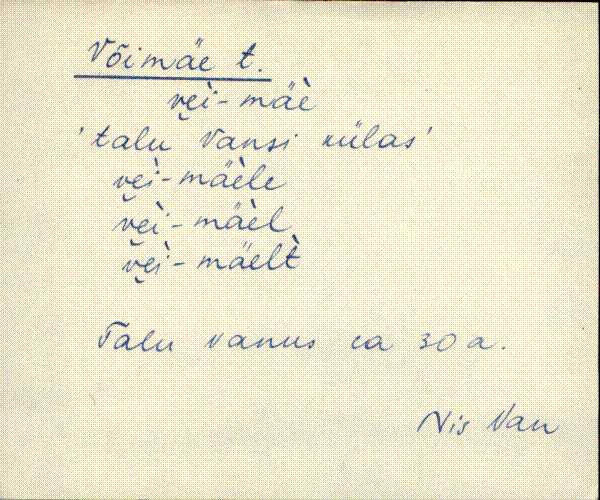 Võimäe t.
vei̯-mäè
'talu Vansi külas'
vei̯-mäèle
vei̯-mäèl
vei̯-mäelt̀
Talu vanus ca 30 a.
Nis Van